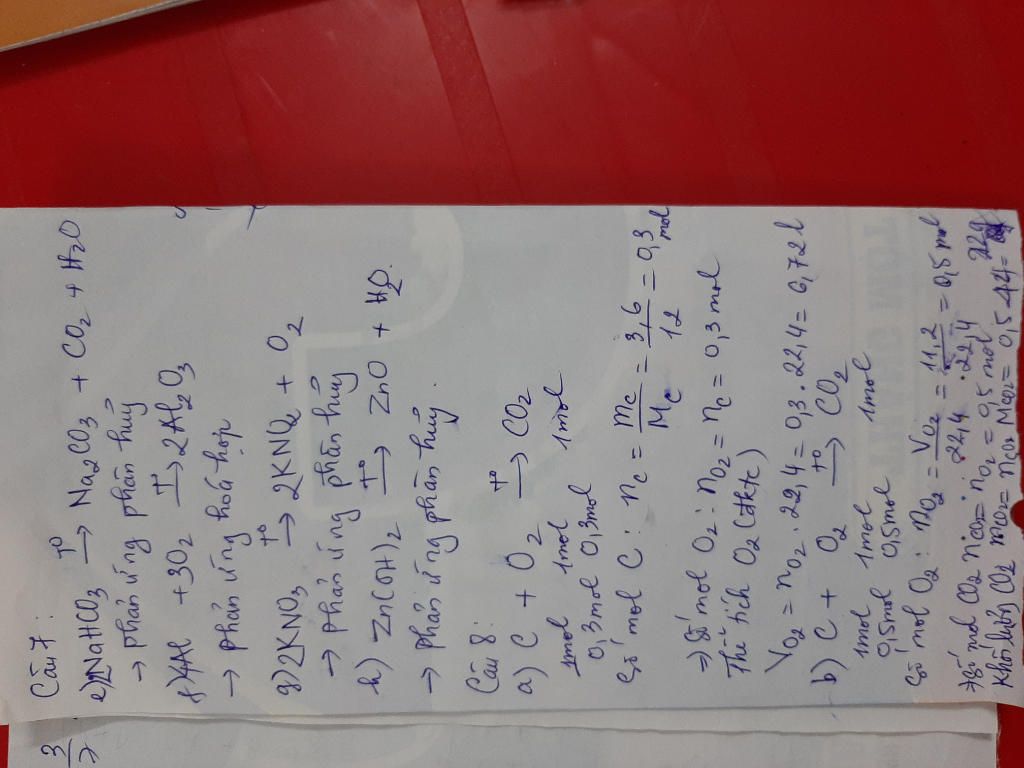 3
7
Câu 7:
e) 2NaHCO3 t° → Na2CO3 + CO2 + H2O
→ phản ứng phân huỷ
f) 4Al + 3O2 t° → 2Al2O3
→ phản ứng hoá hợp
g) 2KNO3 t° → 2KNO2 + O2
→ phản ứng phân huỷ
h) Zn(OH)2 t° → ZnO + H2O.
→ phản ứng phân huỷ.
Câu 8:
a) C + O2 t° → CO2
1mol 1mol 1mol
0,3mol 0,3mol
Số mol C: nC = mC/MC = 3,6/12 = 0,3 mol
⇒ Số mol O2: nO2 = nC = 0,3 mol
Thể tích O2 (đktc)
VO2 = nO2 . 22,4 = 0,3 . 22,4 = 6,72 l
b) C + O2 t° → CO2
1mol 1mol 1mol
0,5mol 0,5mol
Số mol O2: nO2 = VO2/22,4 = 11,2/22,4 = 0,5 mol
⇒ Số mol CO2 nCO2 = nO2 = 0,5 mol
Khối lượng CO2 mCO2 = nCO2 . MCO2 = 0,5 . 44 = 22g